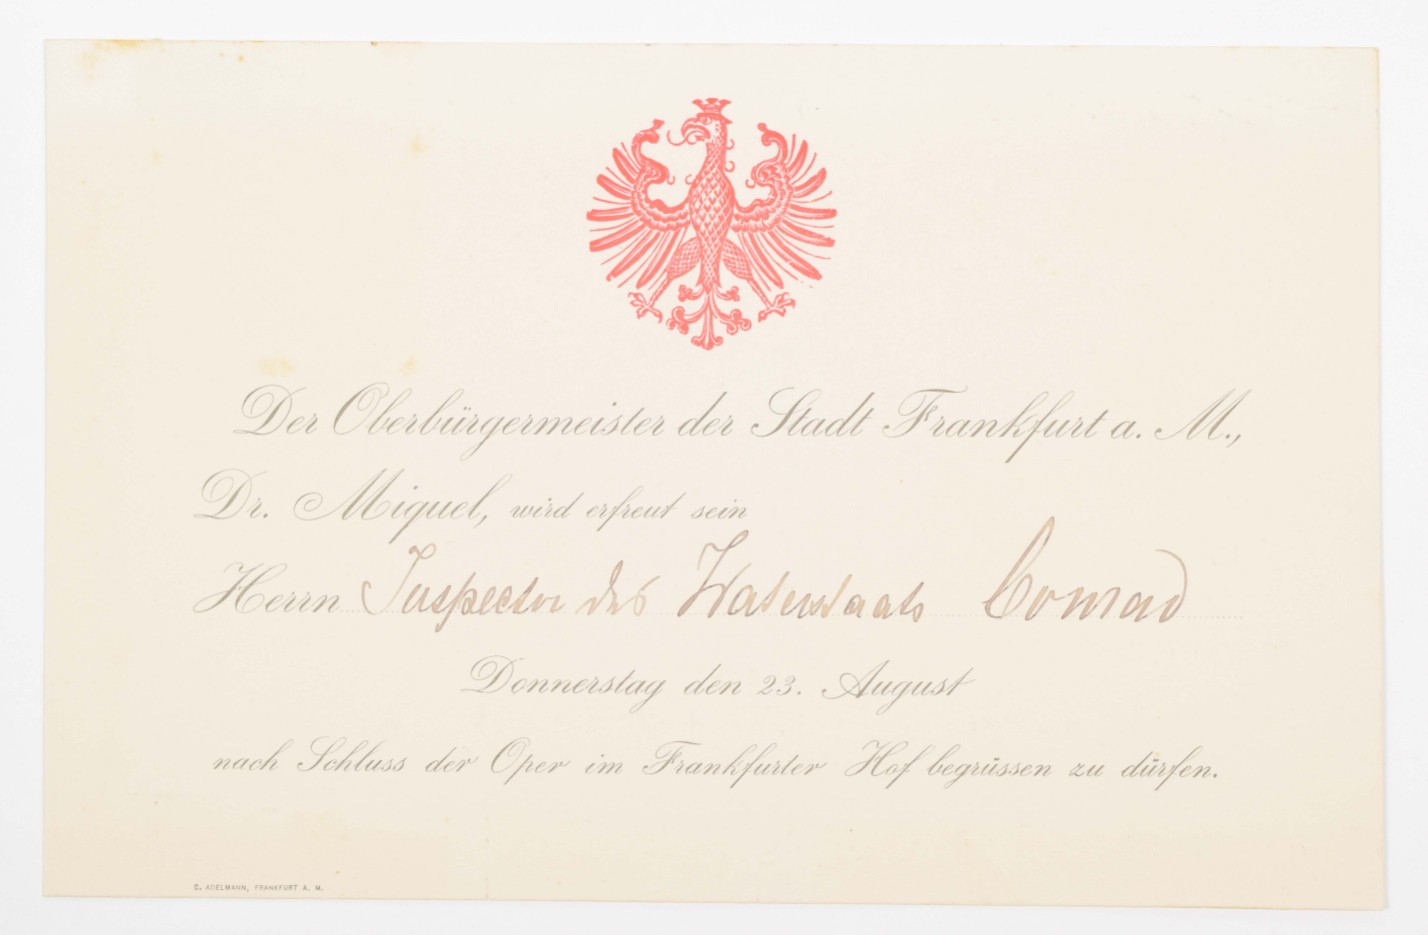 Der Oberbürgermeister der Stadt Frankfurt a. M.,
Dr. Miquel, wird erfreut sein
Herrn Inspector des Waterstaats Conrad
Donnerstag den 23. August
nach Schluss der Oper im Frankfurter Hof begrüssen zu dürfen.
C. ADELMANN, FRANKFURT A. M.